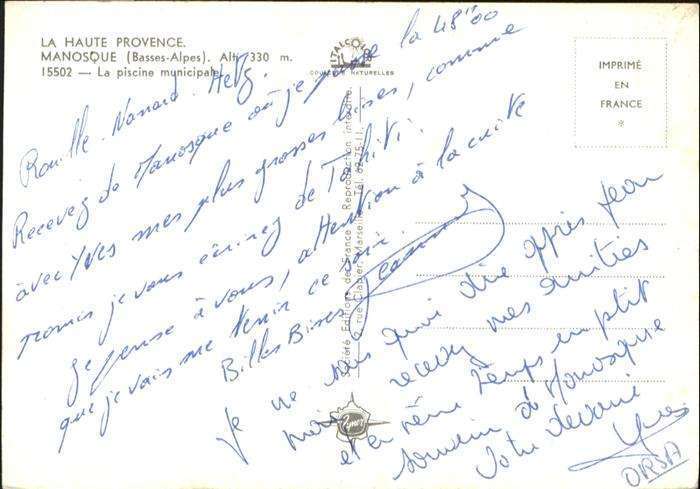 LA HAUTE PROVENCE.
MANOSQUE (Basses-Alpes). Alt. 330 m.
15502 — La piscine municipale
ITALCOLOR
COULEURS NATURELLES
IMPRIMÉ
EN
FRANCE
*
Société Éditions de France Reproduction interdite.
2, rue Clapier, Marseille Tél. 62-75-11.
Rouille. Nanard. Hetz.
Recevez de Manosque où je passe la 48"00
avec Yves mes plus grosses bises, comme
promis je vous écrirez de Tahiti.
Je pense à vous, attention à la cuite
que je vais me tenir ce soir.
Billes Bises
Je ne sais quoi dire après Jean
mais recevez mes amitiés
et en même temps un ptit
souvenir de Manosque
Votre dévoué
Yves
ORSA